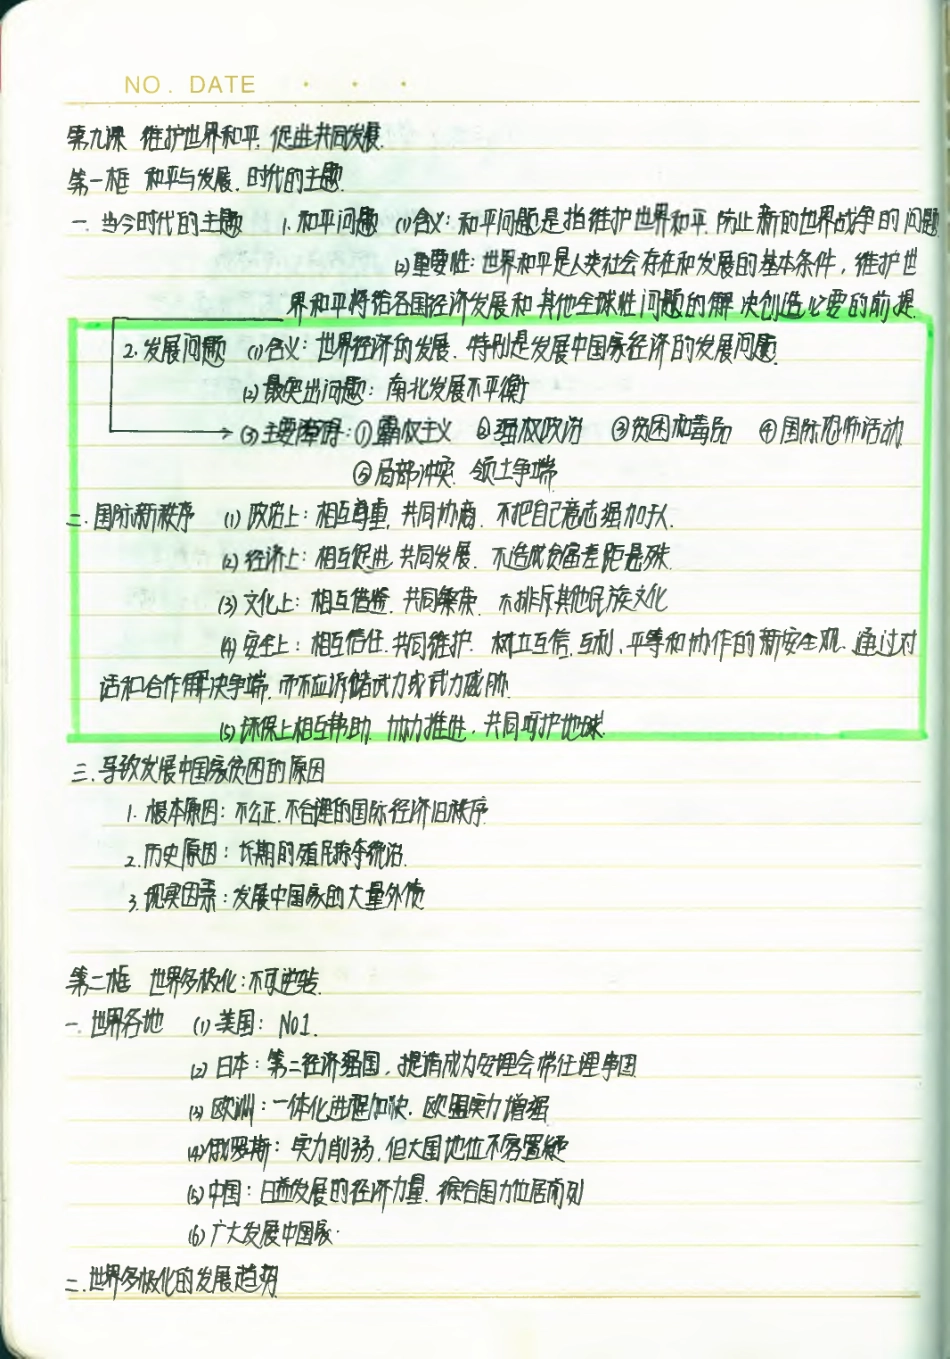 NO. DATE
第九课 维护世界和平,促进共同发展.
第一框 和平与发展,时代的主题.
一.当今时代的主题 1.和平问题 (1)含义:和平问题是指维护世界和平,防止新的世界战争的问题.
(2)重要性:世界和平是人类社会存在和发展的基本条件,维护世
界和平将给各国经济发展和其他全球性问题的解决创造必要的前提.
2.发展问题 (1)含义:世界经济的发展,特别是发展中国家经济的发展问题.
(2)最突出问题:南北发展不平衡
(3)主要障碍:①霸权主义 ②强权政治 ③贫困和毒品 ④国际恐怖活动
⑤局部冲突,领土争端
二.国际新秩序 (1)政治上:相互尊重,共同协商,不把自己意志强加于人.
(2)经济上:相互促进,共同发展,不造成贫富差距悬殊.
(3)文化上:相互借鉴,共同繁荣,不排斥其他民族文化
(4)安全上:相互信任,共同维护,树立互信,互利、平等和协作的新安全观,通过对
话和合作解决争端,而不应诉诸武力或武力威胁.
(5)环保上相互帮助,协力推进,共同呵护地球.
三.导致发展中国家贫困的原因
1.根本原因:不公正,不合理的国际经济旧秩序
2.历史原因:长期的殖民掠夺统治.
3.现实因素:发展中国家的大量外债
第二框 世界多极化:不可逆转.
一.世界各地 (1)美国:No1.
(2)日本:第二经济强国,提请成为安理会常任理事国
(3)欧洲:一体化进程加快,欧盟实力增强
(4)俄罗斯:实力削弱,但大国地位不容置疑
(5)中国:日益发展的经济力量,综合国力位居前列
(6)广大发展中国家.
二.世界多极化的发展趋势